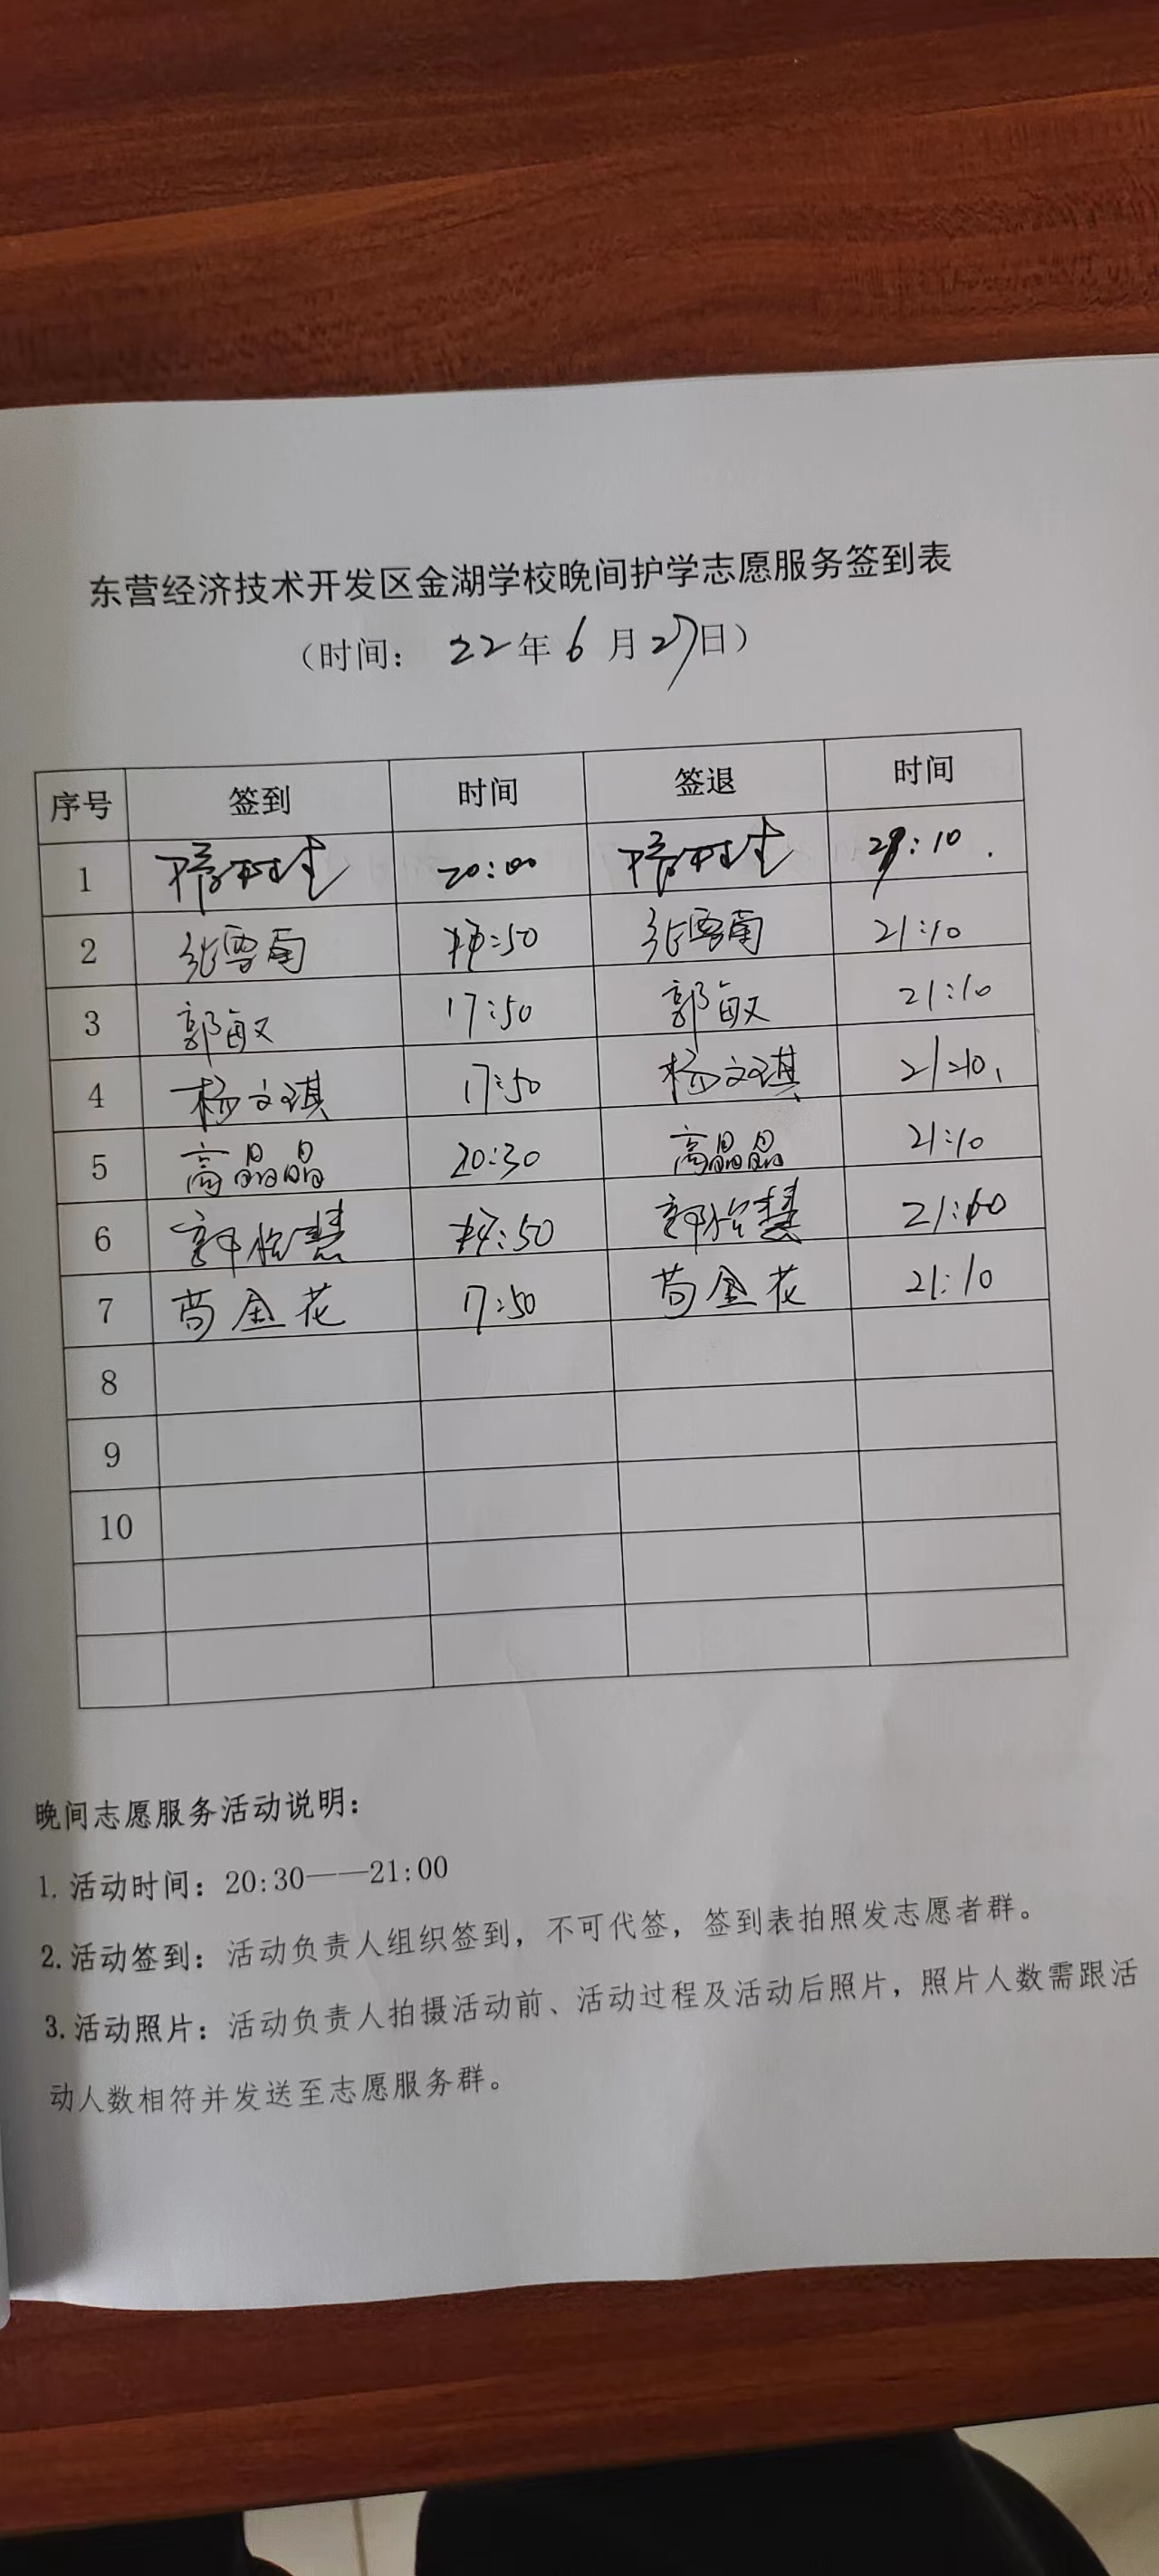 东营经济技术开发区金湖学校晚间护学志愿服务签到表
（时间： 22年6月27日）
序号 签到 时间 签退 时间
1 20:00 :10
2 张雪南 :50 张雪南 21:10
3 郭敏 17:50 郭敏 21:10
4 杨文琪 17:50 杨文琪 21:10
5 高晶晶 20:30 高晶晶 21:10
6 郭怡慧 :50 郭怡慧 21:10
7 苟金花 17:50 苟金花 21:10
8
9
10
晚间志愿服务活动说明：
1. 活动时间：20:30——21:00
2. 活动签到：活动负责人组织签到，不可代签，签到表拍照发志愿者群。
3. 活动照片：活动负责人拍摄活动前、活动过程及活动后照片，照片人数需跟活
动人数相符并发送至志愿服务群。